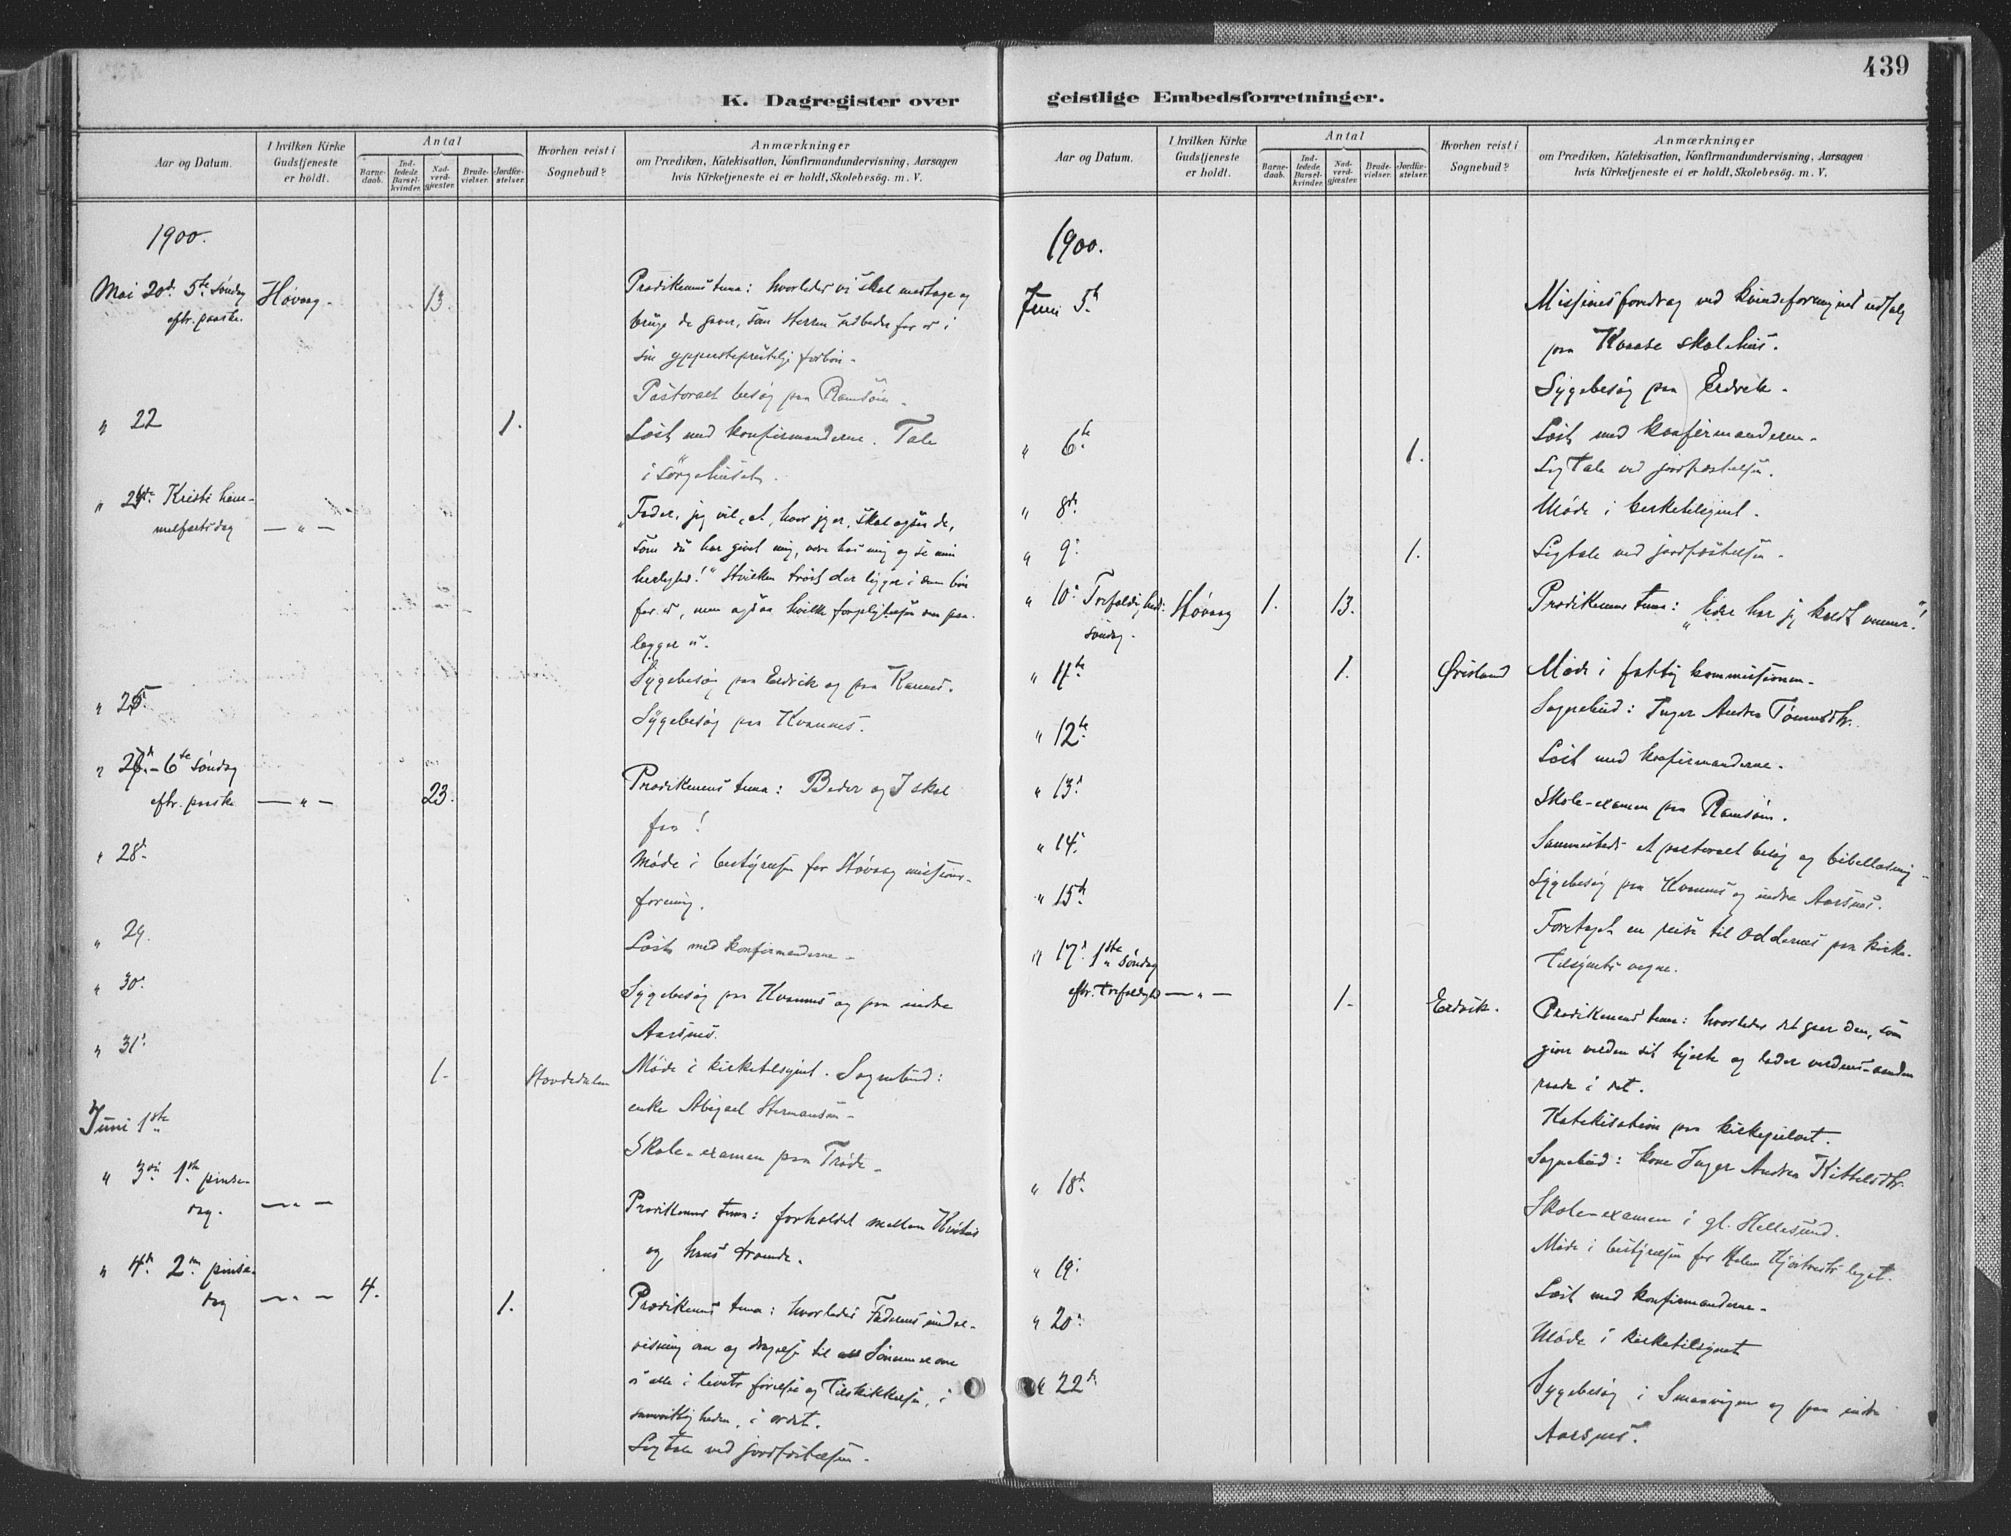 439
K. Dagregister over
Aar og Datum.
I hvilken Kirke
Gudstjeneste
er holdt.
Antal
Barne-
daab.
Ind-
ledede
Barsel-
kvinder.
Nad-
verd-
gjæster.
Brude-
vielser.
Jordfæ-
stelser.
Hvorhen reist i
Sognebud?
Anmærkninger
om Prædiken, Katekisation, Konfirmandundervisning, Aarsagen
hvis Kirketjeneste ei er holdt, Skolebesøg. m. V.
1900.
Mai 20d. 5te søndag Høvaag. 13. Prædikenens tema: hvorledes vi skal modtage og
eftr. paaske. bruge de gaver, som Herren udbeder for os i
sin ypperstepræstelige forbøn.
Pastoralt besøg paa Ramsøen.
" 22 1. Læst med konfirmanderne. Tale
i sørgehuset.
" 24de Kristi him- "Fader, jeg vil, at, hvor jeg er, skal også de,
melfartsdag — " — som du har givet mig, være hos mig og se min
herlighed!" Hvilken trøst der ligger i den bøn
for os, men også hvilke forpligtelser den paa-
lægger os.
Sygebesøg paa Eidvik og paa
" 25. Sygebesøg paa Kvannes.
" 27d. 6te søndag Prædikenens tema: Beder og I skal
eftr. paaske — " — 23. faa!
" 28d. Møde i bestyrelsen for Høvaag missions-
forening.
" 29. Læst med konfirmanderne.
" 30. Sygebesøg paa Kvannes og paa indre
Aarsnes.
" 31. Møde i kirketilsynet. Sognebud:
1. Hovdedalen enke Abigael Hermansen.
Juni 1ste Skole-examen paa Trøde.
" 3die 1ste pinse- Prædikenens tema: forholdet mellem Kristus
dag. — " — og hans troende.
" 4de 2den pinse-
dag — " — 4. 1. Prædikenens tema: hvorledes Faderens under-
visning om og dragelse til Sønnen
os alle i livets førelse og tilskikkelser, i
samvittigheden, i ordet.
Ligtale ved jordfæstelsen.
geistlige Embedsforretninger.
Aar og Datum.
I hvilken Kirke
Gudstjeneste
er holdt.
Antal
Barne-
daab.
Ind-
ledede
Barsel-
kvinder.
Nad-
verd-
gjæster.
Brude-
vielser.
Jordfæ-
stelser.
Hvorhen reist i
Sognebud?
Anmærkninger
om Prædiken, Katekisation, Konfirmandundervisning, Aarsagen
hvis Kirketjeneste ei er holdt, Skolebesøg. m. V.
1900.
Juni 5te Missionsforedrag ved kvindeforeningens udsalg
paa Kvaase skolehus.
Sygebesøg paa Eidvik.
" 6te 1. Læst med konfirmanderne.
Ligtale ved jordfæstelsen.
" 8de Møde i kirketilsynet.
" 9. 1. Ligtale ved jordfæstelsen.
" 10. Trefoldigheds- Høvaag 1. 13. Prædikenens tema: "Eder har jeg kaldt venner!"
søndag.
" 11te 1. Øvisland Møde i fattigkommissionen.
Sognebud: Inger Andrea Tønnesdtr.
" 12te Læst med konfirmanderne.
" 13. Skole-examen paa Ramsøen.
" 14. Sammesteds et pastoralt besøg og bibellæsning.
" 15de Sygebesøg paa Kvannes og indre Aarsnes.
Foretaget en reise til Oddernes paa kirke-
tilsynets vegne.
" 17. 1ste søndag
eftr. trefoldighed — " — 1. Eidvik. Prædikenens tema: hvorledes det gaar den, som
giver verden sit hjerte og lader verdens-aanden
raade i det.
Katekisation paa kirkegulvet.
Sognebud: kone Inger Andrea Kittelsdtr.
" 18d. Skole-examen i gl. Hellesund.
" 19. Møde i bestyrelsen for
Læst med konfirmanderne.
" 20. Møde i kirketilsynet
" 22de Sygebesøg i Smaavigen og paa indre
Aarsnes.